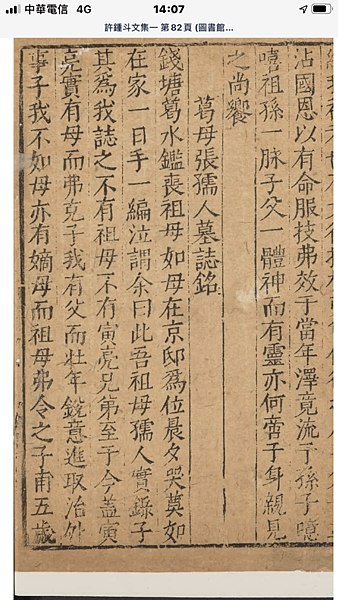 中華電信 4G 14:07
許鍾斗文集一 第82頁 (圖書館...
沾國恩以有命服技弗效于當年澤竟流于孫子噫
嘻祖孫一脉子父一體神而有靈亦何啻子身親見
之尚饗
葛母張孺人墓誌銘
錢塘葛水鑑喪祖母如母在京邸爲位晨夕哭奠如
在家一日手一編泣謂余曰此吾祖母孺人實錄子
其爲我誌之不有祖母不有寅亮兄弟至于今蓋寅
亮實有母而弗克子我有父而壯年銳意進取治外
事子我不如母亦有嫡母而祖母弗令之子甫五歲